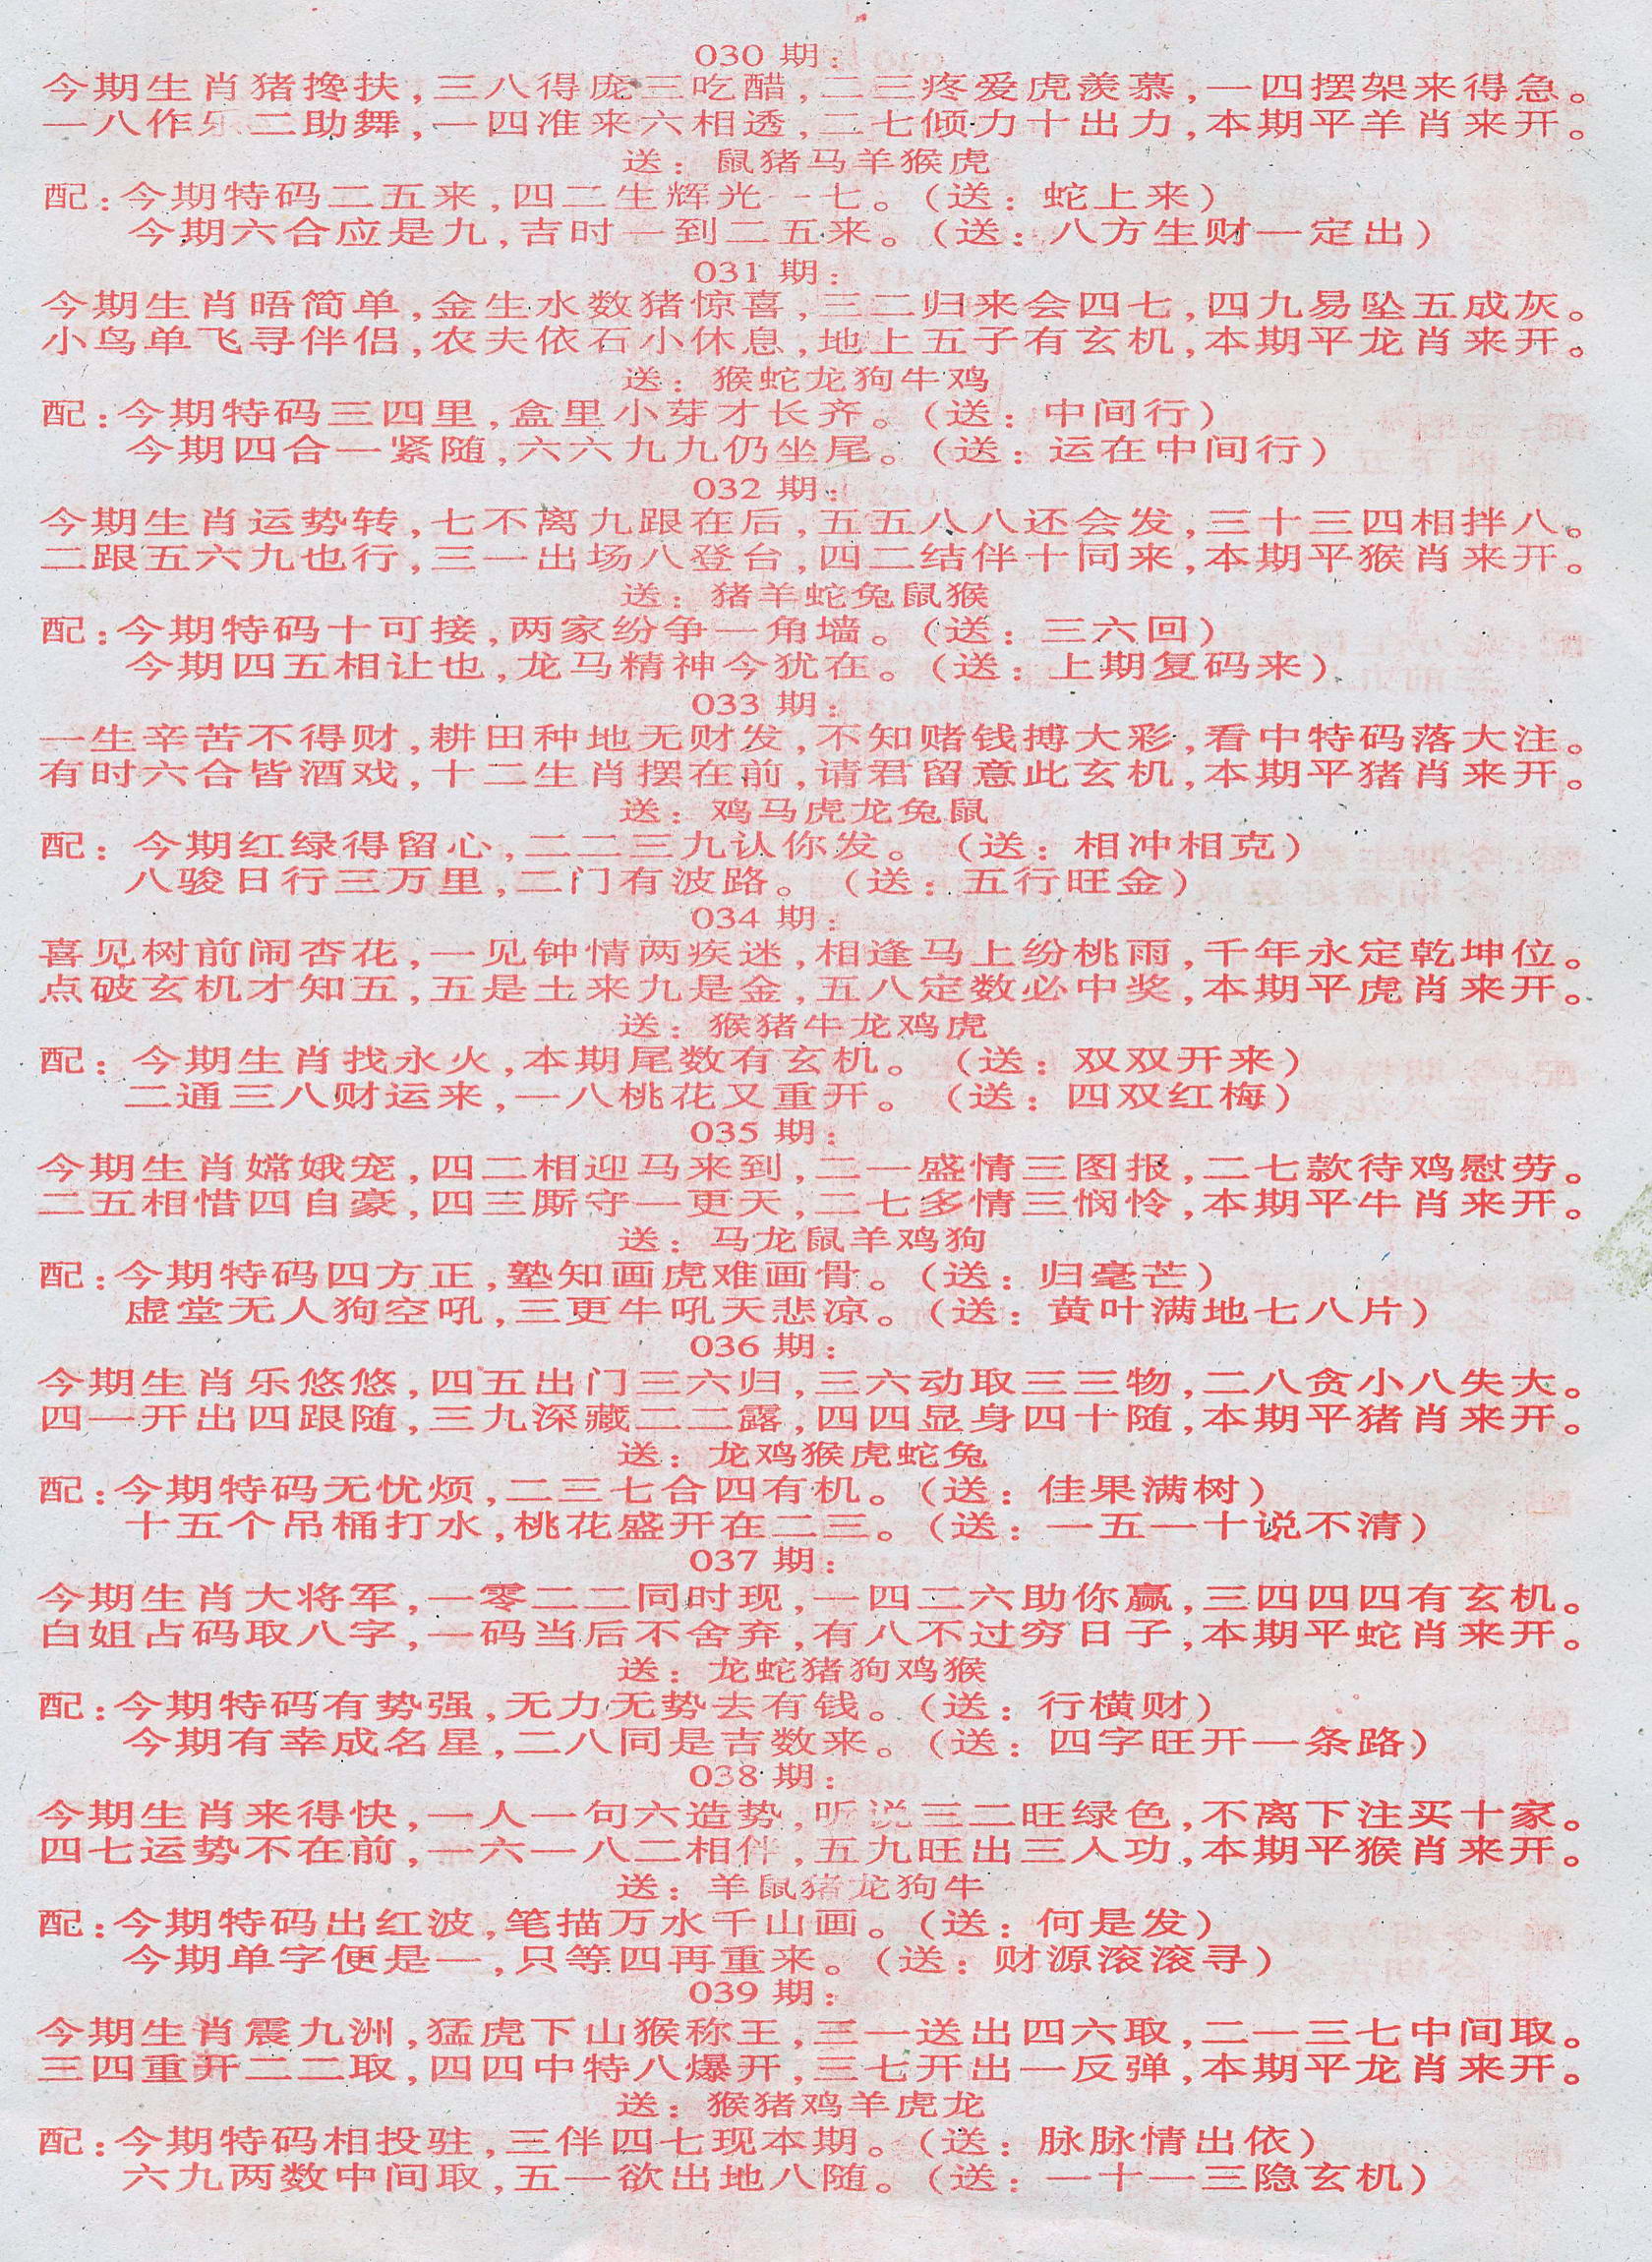 030 期:
今期生肖猪搀扶,三八得庞三吃醋,二三疼爱虎羡慕,一四摆架来得急。
一八作乐二助舞,一四准来六相透,二七倾力十出力,本期平羊肖来开。
送: 鼠猪马羊猴虎
配:今期特码二五来,四二生辉光一七。(送: 蛇上来)
今期六合应是九,吉时一到二五来。(送: 八方生财一定出)
031 期:
今期生肖唔简单,金生水数猪惊喜,三二归来会四七,四九易坠五成灰。
小鸟单飞寻伴侣,农夫依石小休息,地上五子有玄机,本期平龙肖来开。
送: 猴蛇龙狗牛鸡
配:今期特码三四里,盒里小芽才长齐。(送: 中间行)
今期四合一紧随,六六九九仍坐尾。(送: 运在中间行)
032 期:
今期生肖运势转,七不离九跟在后,五五八八还会发,三十三四相拌八。
二跟五六九也行,三一出场八登台,四二结伴十同来,本期平猴肖来开。
送: 猪羊蛇兔鼠猴
配:今期特码十可接,两家纷争一角墙。(送: 三六回)
今期四五相让也,龙马精神今犹在。(送: 上期复码来)
033 期:
一生辛苦不得财,耕田种地无财发,不知赌钱搏大彩,看中特码落大注。
有时六合皆酒戏,十二生肖摆在前,请君留意此玄机,本期平猪肖来开。
送: 鸡马虎龙兔鼠
配: 今期红绿得留心,二二三九认你发。(送: 相冲相克)
八骏日行三万里,二门有波路。(送: 五行旺金)
034 期:
喜见树前闹杏花,一见钟情两疾迷,相逢马上纷桃雨,千年永定乾坤位。
点破玄机才知五,五是土来九是金,五八定数必中奖,本期平虎肖来开。
送: 猴猪牛龙鸡虎
配: 今期生肖找永火,本期尾数有玄机。(送: 双双开来)
二通三八财运来,一八桃花又重开。(送: 四双红梅)
035 期:
今期生肖嫦娥宠,四二相迎马来到,二一盛情三图报,二七款待鸡慰劳。
二五相惜四自豪,四三厮守一更天,二七多情三悯怜,本期平牛肖来开。
送: 马龙鼠羊鸡狗
配:今期特码四方正,塾知画虎难画骨。(送: 归毫芒)
虚堂无人狗空吼,三更牛吼天悲凉。(送: 黄叶满地七八片)
036 期:
今期生肖乐悠悠,四五出门三六归,三六动取三三物,二八贪小八失大。
四一开出四跟随,三九深藏二二露,四四显身四十随,本期平猪肖来开。
送: 龙鸡猴虎蛇兔
配:今期特码无忧烦,二三七合四有机。(送: 佳果满树)
十五个吊桶打水,桃花盛开在二三。(送: 一五一十说不清)
037 期:
今期生肖大将军,一零二二同时现,一四二六助你赢,三四四四有玄机。
白姐占码取八字,一码当后不舍弃,有八不过穷日子,本期平蛇肖来开。
送: 龙蛇猪狗鸡猴
配:今期特码有势强,无力无势去有钱。(送: 行横财)
今期有幸成名星,二八同是吉数来。(送: 四字旺开一条路)
038 期:
今期生肖来得快,一人一句六造势,听说三二旺绿色,不离下注买十家。
四七运势不在前,一六一八二相伴,五九旺出三人功,本期平猴肖来开。
送: 羊鼠猪龙狗牛
配:今期特码出红波,笔描万水千山画。(送: 何是发)
今期单字便是一,只等四再重来。(送: 财源滚滚寻)
039 期:
今期生肖震九洲,猛虎下山猴称王,三一送出四六取,二一三七中间取。
三四重开二二取,四四中特八爆开,三七开出一反弹,本期平龙肖来开。
送: 猴猪鸡羊虎龙
配:今期特码相投驻,三伴四七现本期。(送: 脉脉情出依)
六九两数中间取,五一欲出地八随。(送: 一十一三隐玄机)